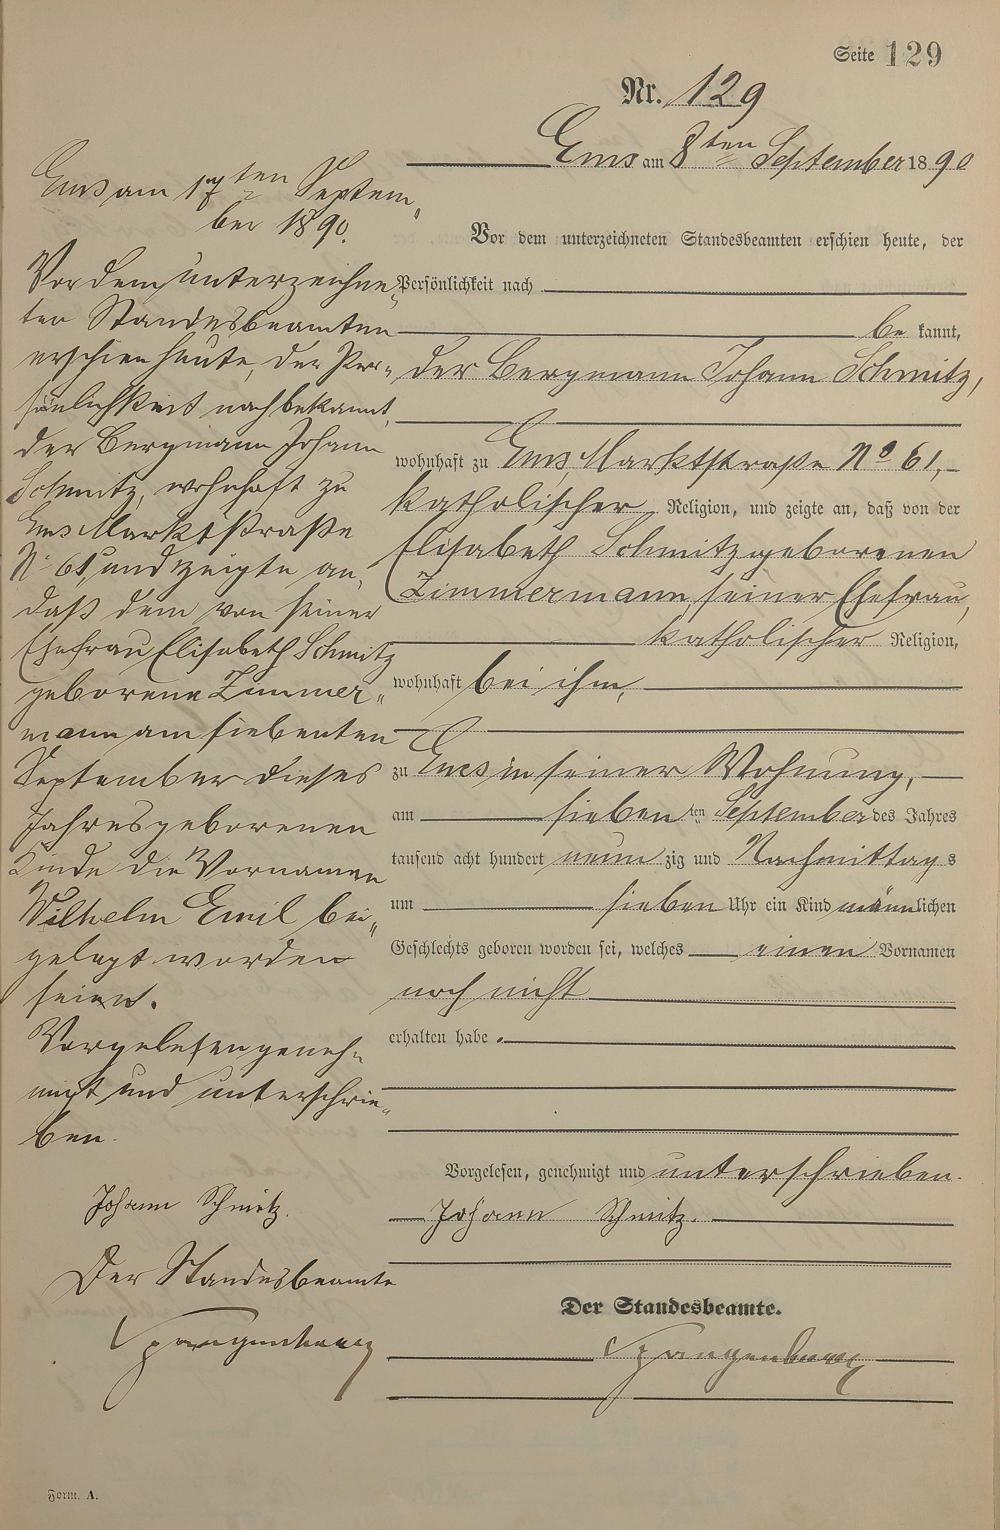 Seite 129
Nr. 129
Ems am 8ten September 1890
Vor dem unterzeichneten Standesbeamten erschien heute, der
Persönlichkeit nach
be kannt,
der Bergmann Johann Schmitz,
wohnhaft zu Ems Marktstraße No 61,
katholischer Religion, und zeigte an, daß von der
Elisabeth Schmitz geborenen
Zimmermann, seiner Ehefrau,
katholischer Religion,
wohnhaft bei ihm,
zu Ems in seiner Wohnung,
am sieben ten September des Jahres
tausend acht hundert neun zig und Nachmittags
um sieben Uhr ein Kind männlichen
Geschlechts geboren worden sei, welches einen Vornamen
noch nicht
erhalten habe.
Vorgelesen, genehmigt und unterschrieben.
Johann Schmitz.
Der Standesbeamte.
Spangenberg
Ems am 17ten Septem„
ber 1890.
Vor dem unterzeichne„
ten Standesbeamten
erschien heute, der Per„
sönlichkeit nach bekannt,
der Bergmann Johann
Schmitz, wohnhaft zu
Ems Marktstraße
No 61 und zeigte an,
daß dem von seiner
Ehefrau Elisabeth Schmitz
geborene Zimmer„
mann am siebenten
September dieses
Jahres geborenen
Kinde die Vornamen
Wilhelm Emil bei„
gelegt worden
seien.
Vorgelesen geneh„
migt und unterschrie„
ben.
Johann Schmitz.
Der Standesbeamte
Spangenberg
Form. A.